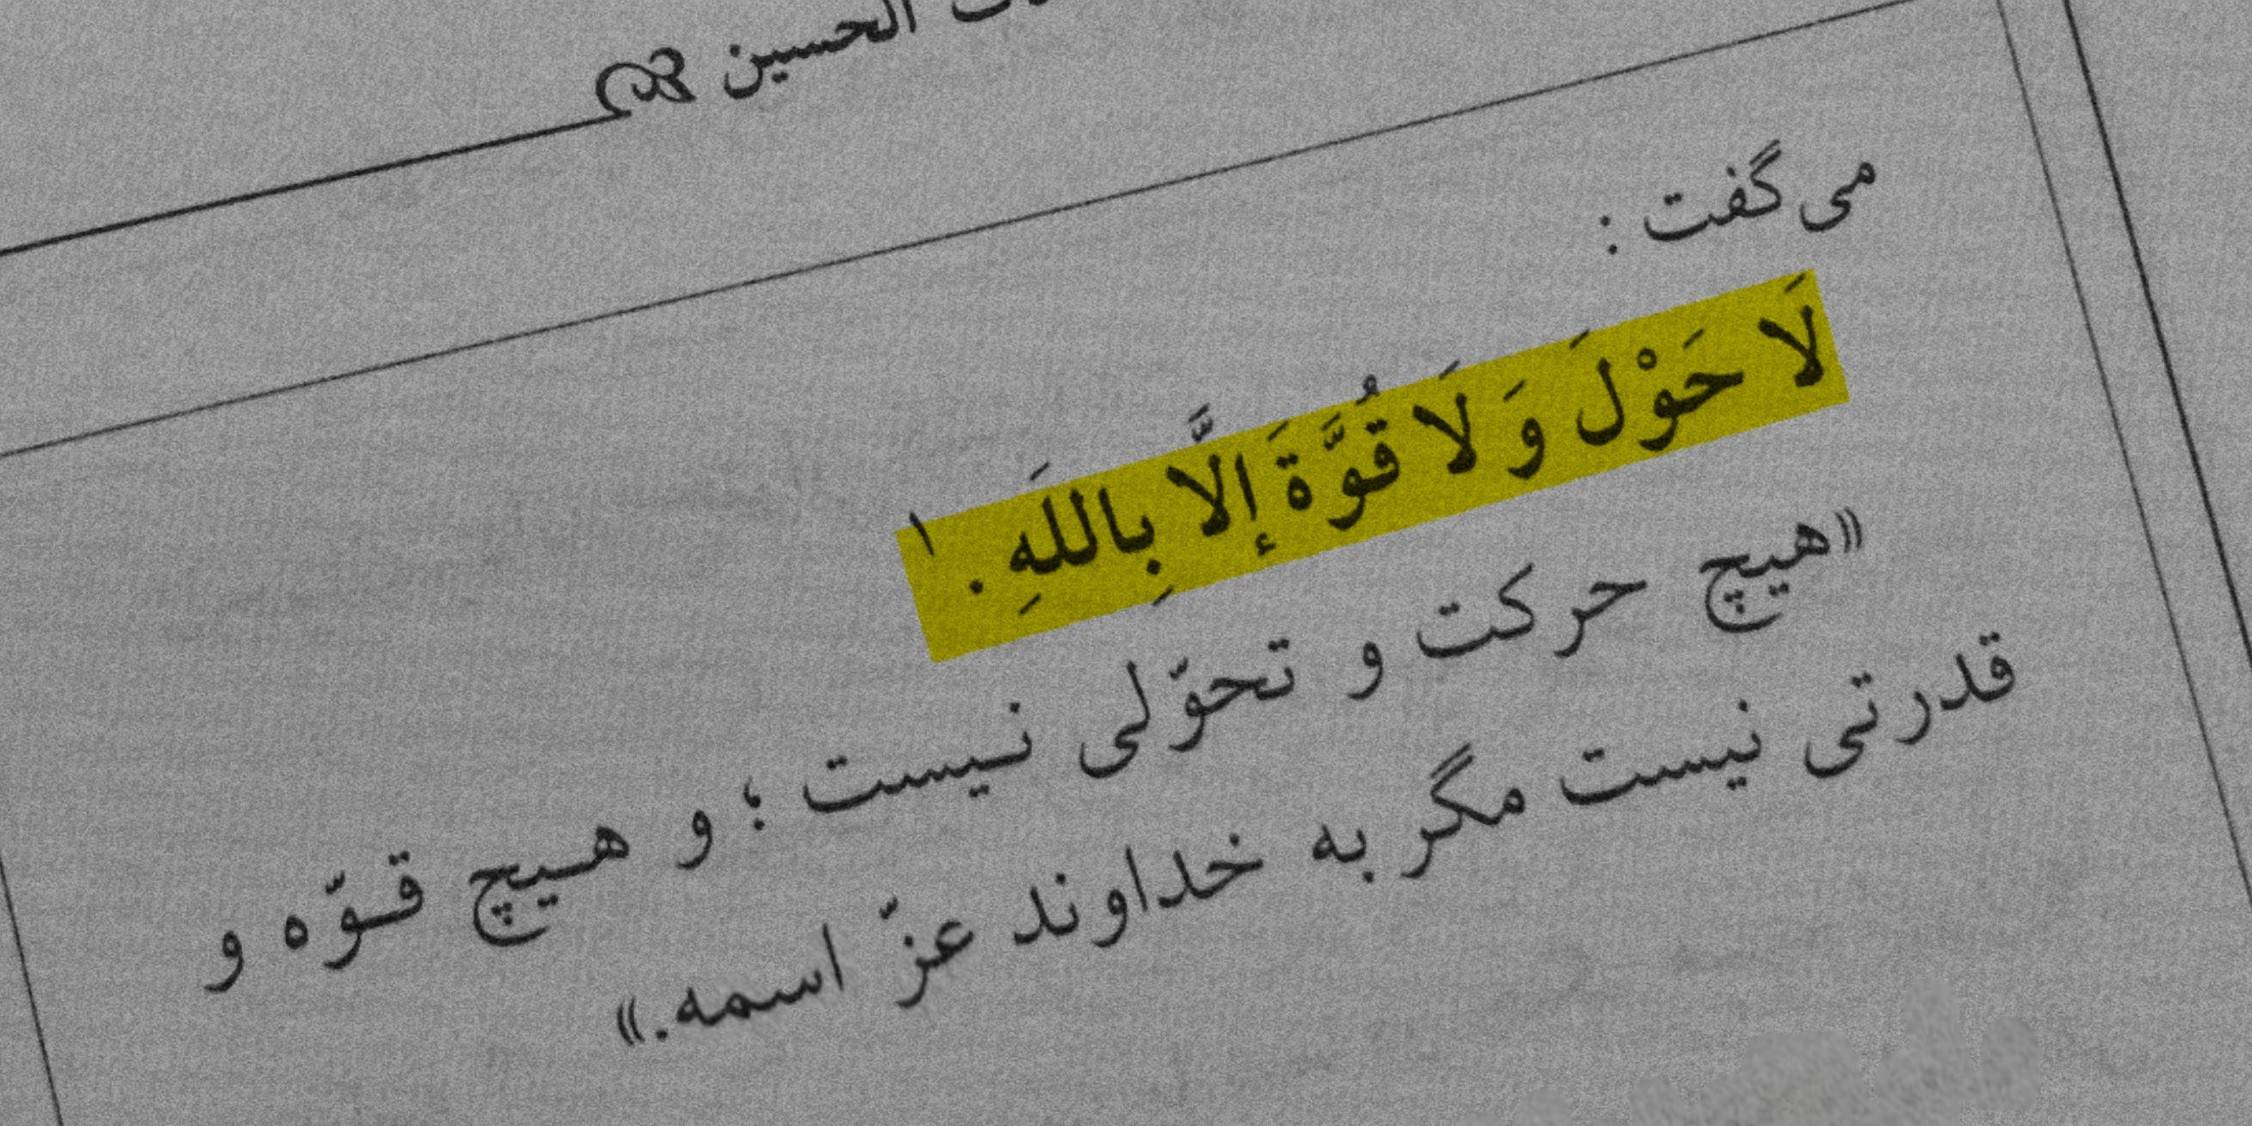 الحسین
می‌گفت :
لَا حَوْلَ وَ لَا قُوَّةَ إلَّا بِاللَهِ . ١
«هیچ حرکت و تحوّلی نیست ؛ و هیچ قوّه و
قدرتی نیست مگر به خداوند عزّ اسمه.»